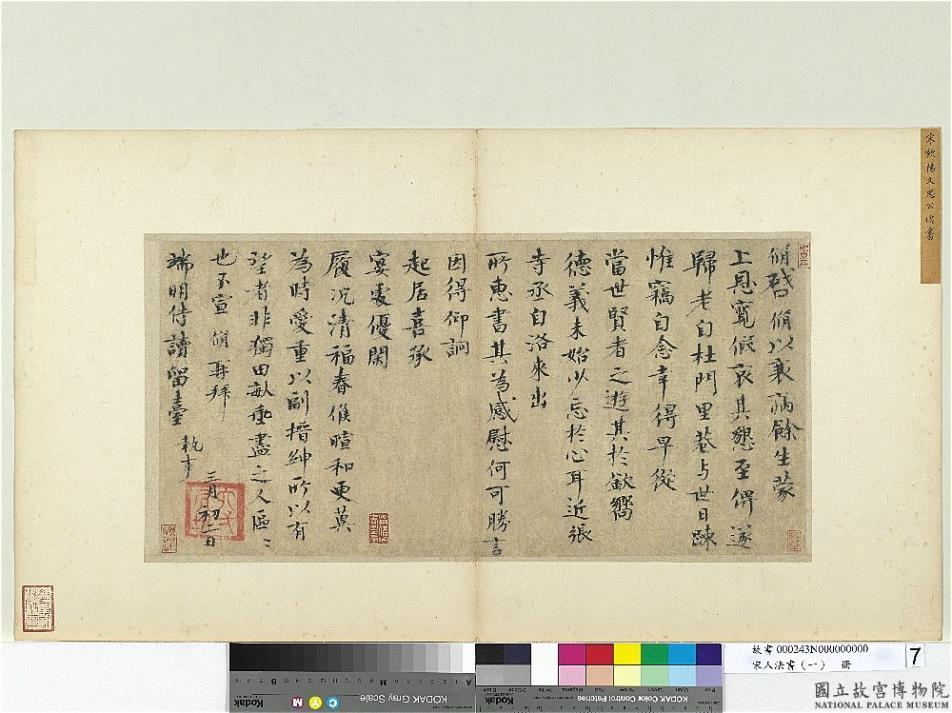 宋歐陽文忠公墨書
脩啓脩以衰病餘生蒙
上恩寬假哀其懇至俾遂
歸老自杜門里巷与世日疎
惟竊自念幸得早從
當世賢者之遊其於欽嚮
德義未始少忘於心耳近張
寺丞自洛來出
所惠書其為感慰何可勝言
因得仰詢
起居喜承
宴處優閑
履況清福春候暄和更冀
為時愛重以副搢紳所以有
望者非獨田畝垂盡之人區〻
也不宣 脩再拜
端明侍讀留臺 執事
三月初二日
KODAK Gray Scale
Kodak
C
Y
M
KODAK Color Control Patches
故書 000243N000000000
宋人法書(一) 冊
7
國立故宮博物院
NATIONAL PALACE MUSEUM